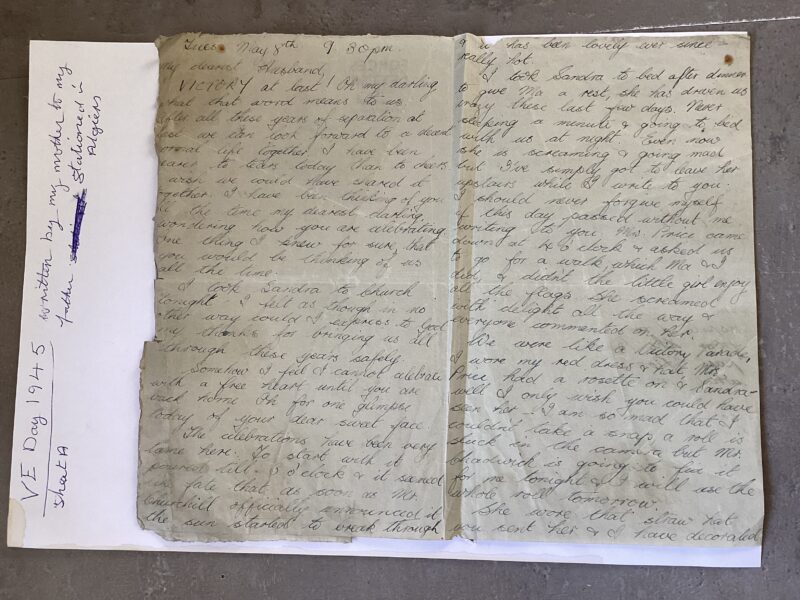 VE Day 1945 written by my mother to my
father stationed in
Algiers
Sheet A
Tues May 8th 9.30pm.
My dearest Husband,
VICTORY at last! Oh my darling
what that word means to us
after all these years of separation at
last we can look forward to a decent
normal life together. I have been
nearer to tears today than to cheers
I wish we could have shared it
together. I have been thinking of you
all the time my dearest darling
wondering how you are celebrating
One thing I knew for sure, that
you would be thinking of us
all the time.
I took Sandra to church
tonight. I felt as though in no
other way could I express to God
my thanks for bringing us all
through these years safely.
Somehow I feel I cannot celebrate
with a free heart until you are
back home Oh for one glimpse
today of your dear sweet face.
The celebrations have been very
tame here. To start with it
poured till 3 o'clock & it seemed
in fate that as soon as Mr.
Churchill officially announced it
the sun started to break through
& it has been lovely ever since
really hot.
I took Sandra to bed after dinner
to give Ma a rest, she has driven us
crazy these last few days. Never
sleeping a minute & going to bed
with us at night. Even now
she is screaming & going mad
but I've simply got to leave her
upstairs while I write to you.
I should never forgive myself
if this day passed without me
writing to you. Mrs. Price came
down at 4.30 o'clock & asked us
to go for a walk, which Ma & I
did, & didn't the little girl enjoy
all the flags. She screamed
with delight all the way &
everyone commented on her.
We were like a Victory Parade,
I wore my red dress & hat Mrs
Price had a rosette on & Sandra -
well I only wish you could have
seen her. I am so mad that I
couldn't take a snap a roll is
stuck in the camera but Mr.
Chadwick is going to fix it
for me tonight & I will use the
whole roll tomorrow.
She wore that straw hat
you sent her & I have decorated